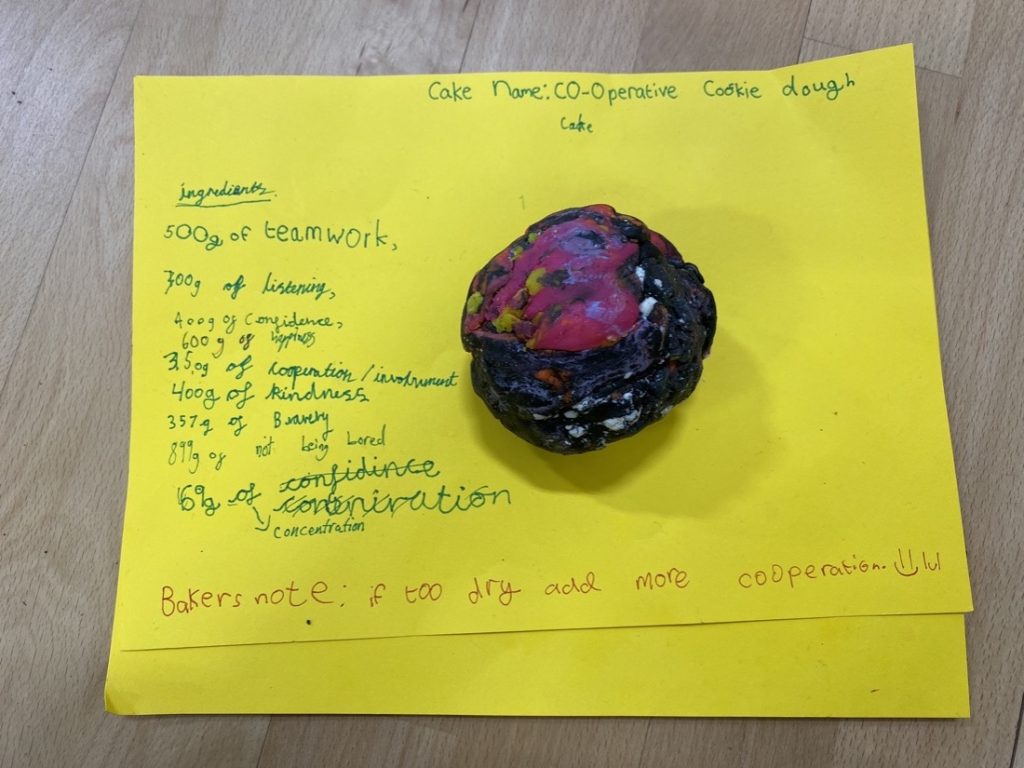 Cake Name: CO-Operative Cookie dough
Cake
ingredients
500g of teamwork,
300g of listening,
400g of Confidence,
600g of happiness
350g of cooperation / involvment
400g of kindness
357g of Bravery
899g of not being bored
of confidince
contniration
concentration
Bakers note: if too dry add more cooperation. lul